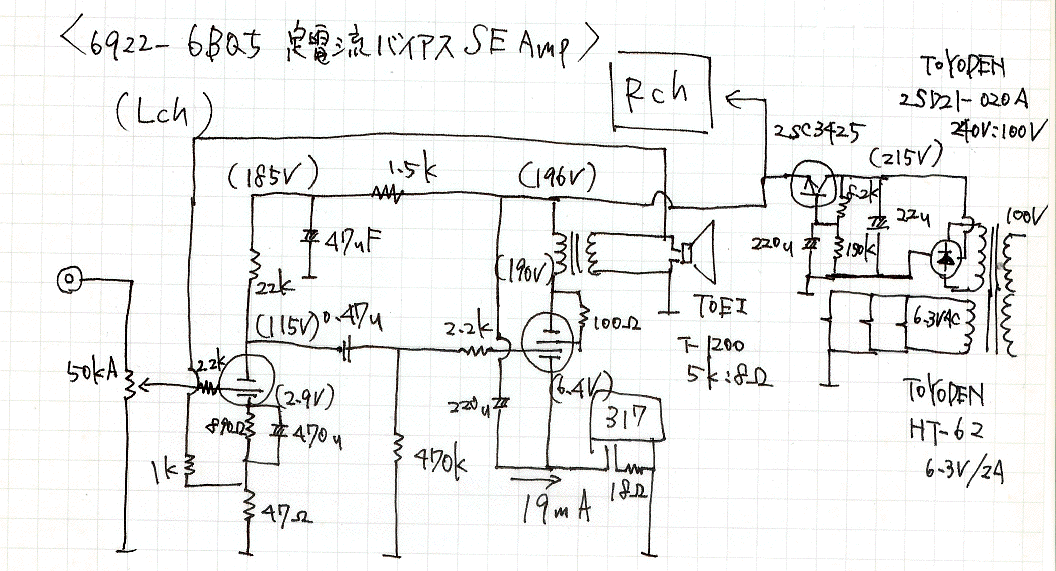 <6922-6BQ5 定電流バイアス SE Amp>
(Lch)
Rch
TOYODEN
2SD21-020A
240V:100V
2SC3425
(215V)
(185V)
1.5k
(196V)
8.2k
22u
100V
47uF
220u
150k
22k
(190V)
(115V)
0.47u
2.2k
100Ω
TOEI
T-1200
5k:8Ω
6.3VAC
50kA
2.2k
(2.9V)
(6.4V)
317
TOYODEN
HT-62
6.3V/2A
890Ω
470u
220u
1k
470k
18Ω
19mA
47Ω